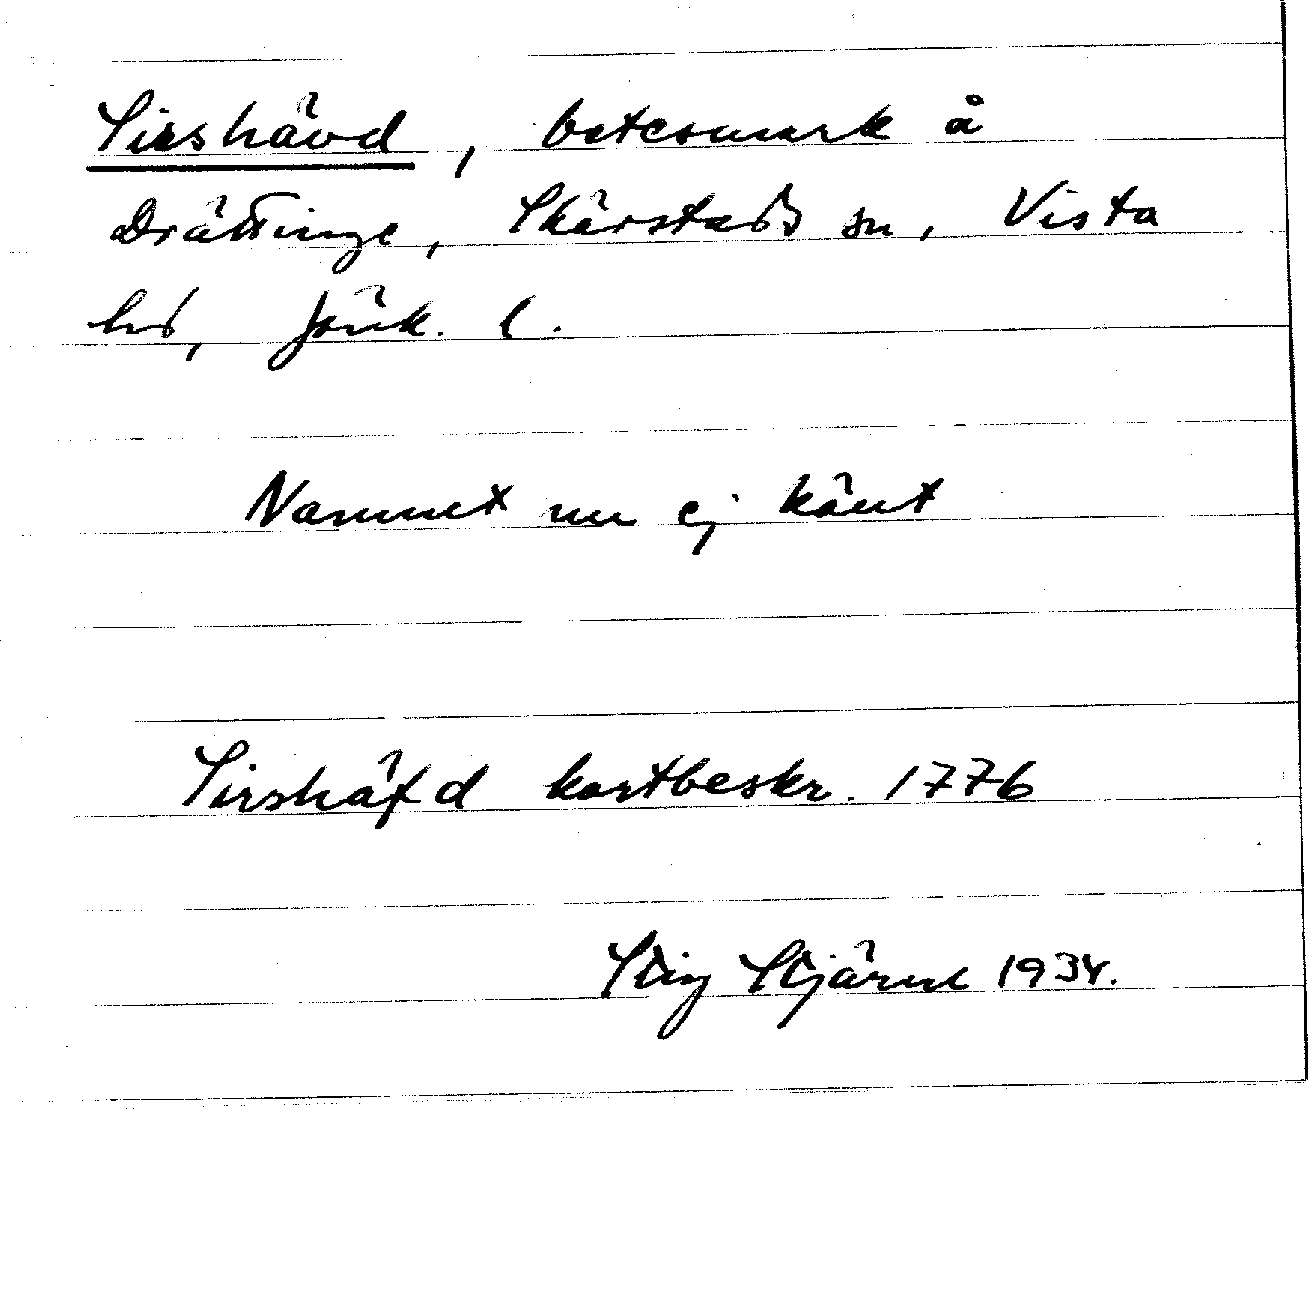 Sirshävd, betesmark å
Drättinge, Skärstads sn, Vista
hd, Jönk. l.
Namnet nu ej känt
Sirshäfd kartbeskr. 1776
Stig Stjärne 1934.